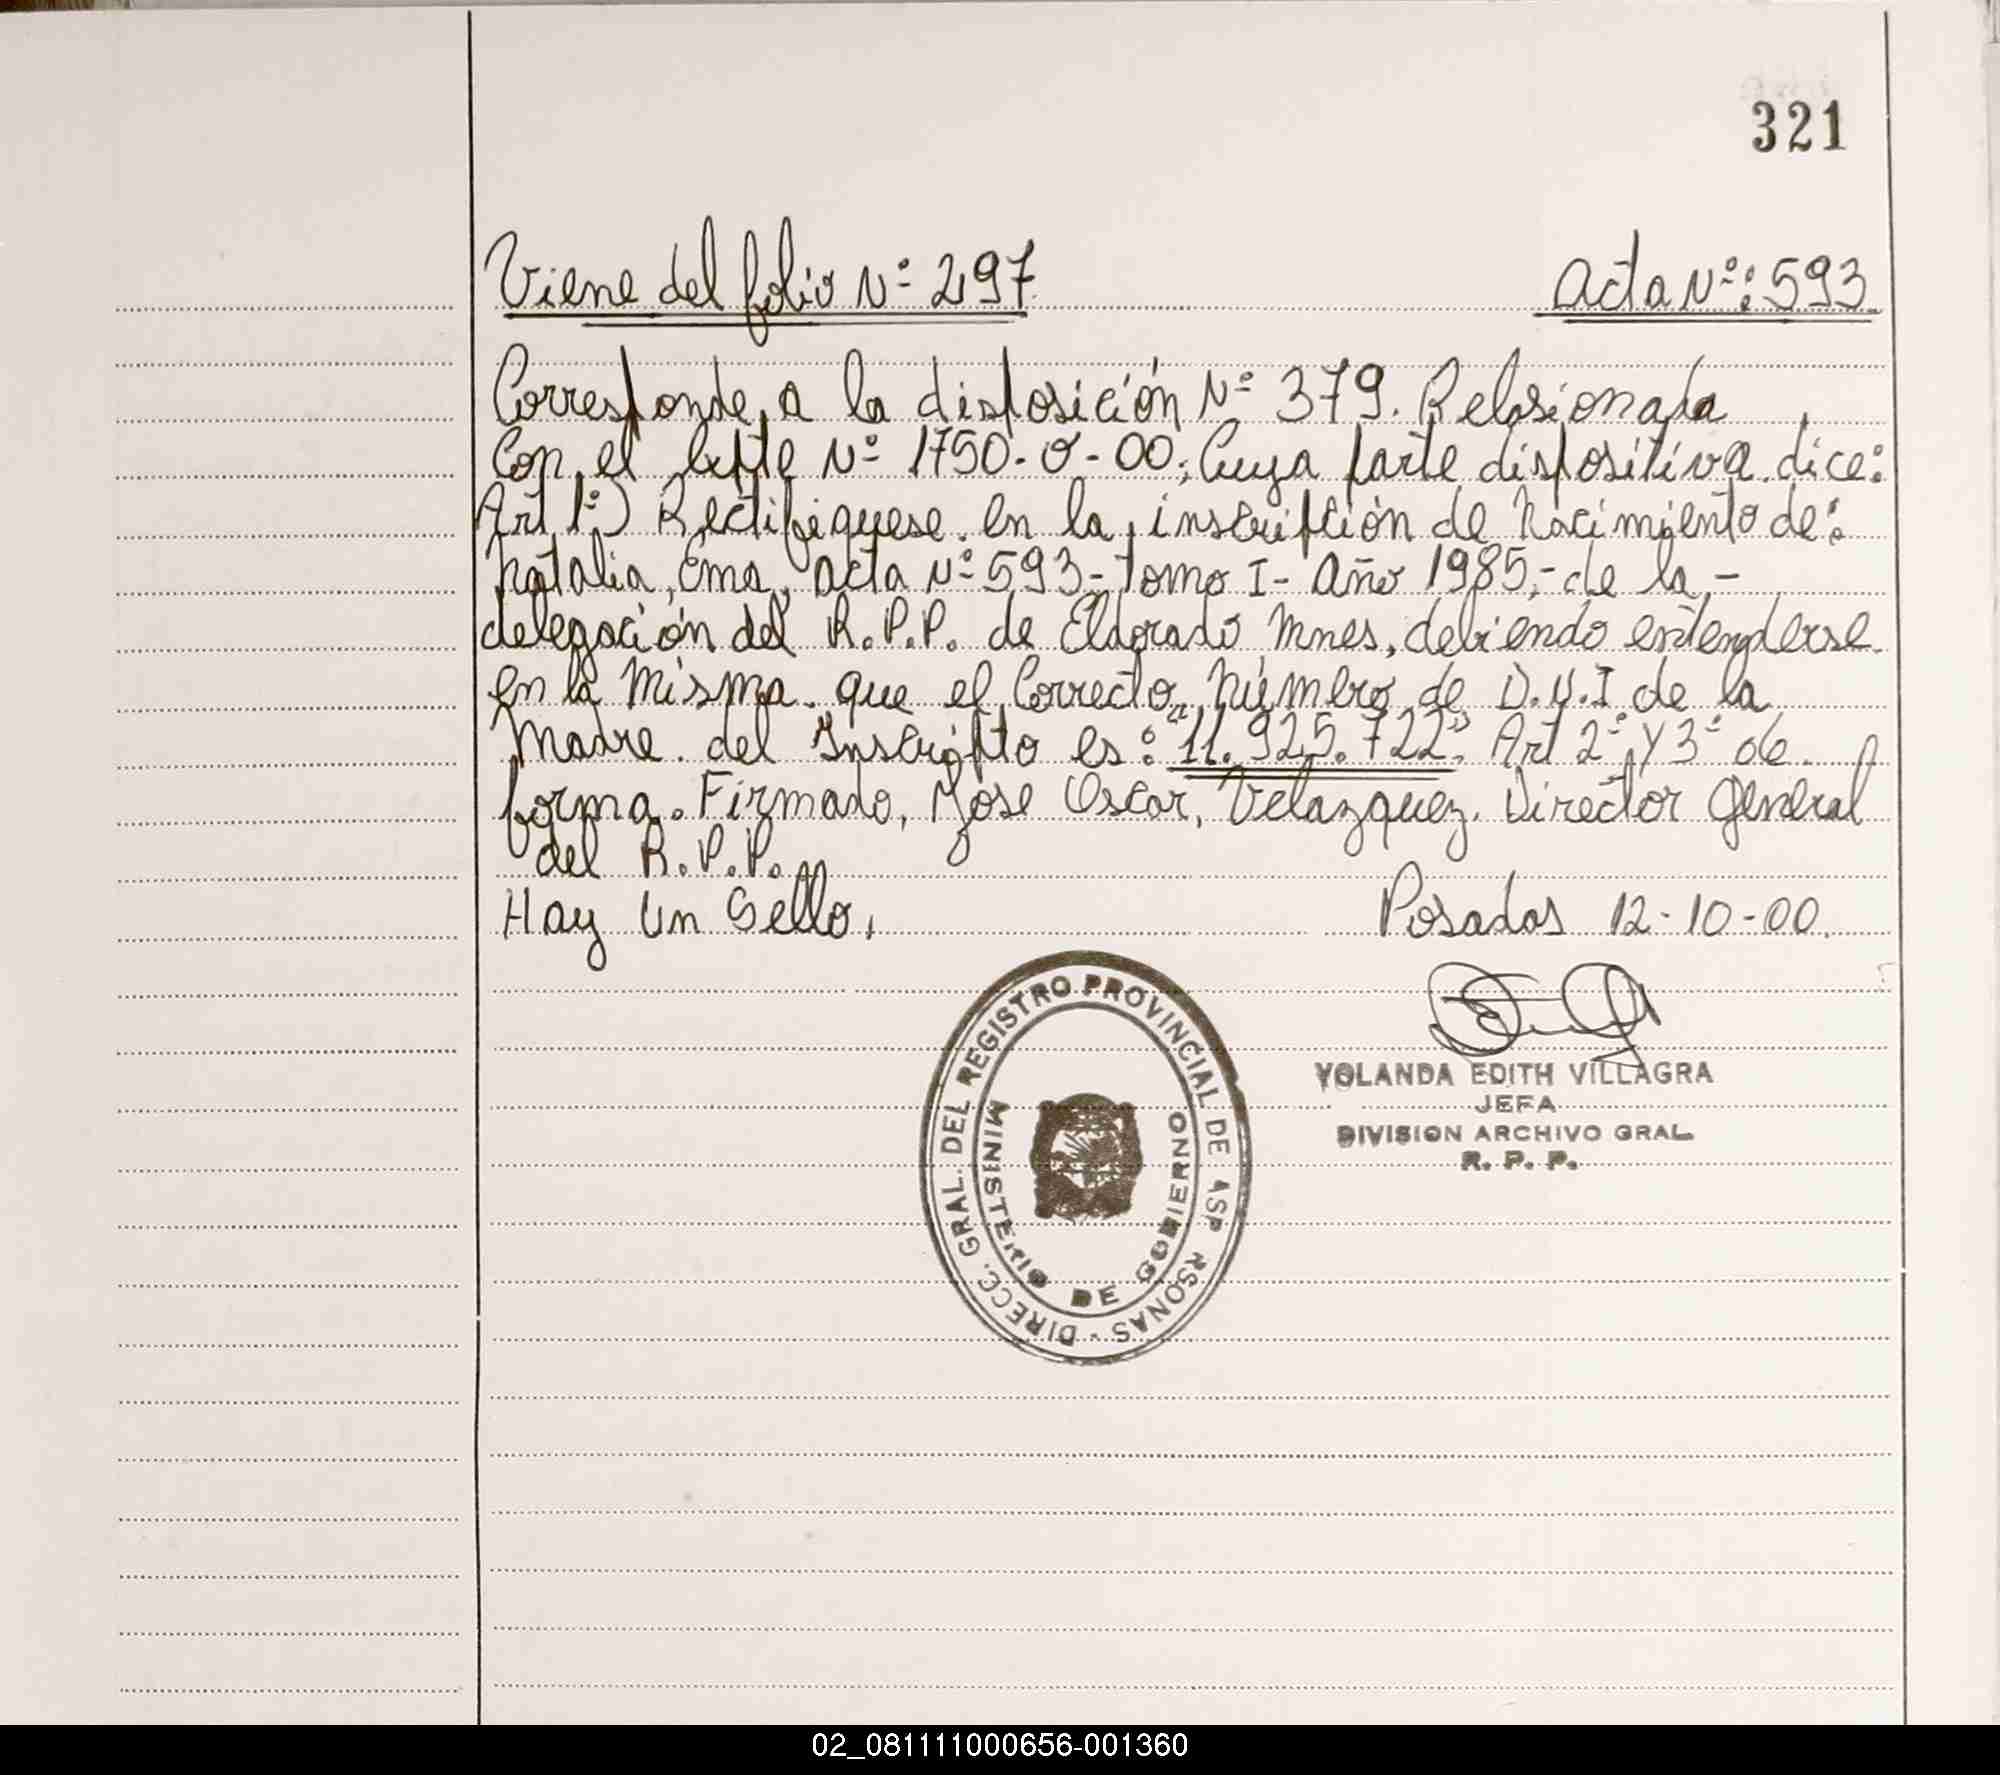 321
Viene del folio Nº 297
Acta Nº: 593
Corresponde a la disposición Nº 379. Relasionada
Con el Expte Nº 1750-O-00; Cuya parte dispositiva dice:
Art 1º) Rectifiquese en la inscripción de Nacimiento de:
Natalia, Ema, acta Nº 593- tomo I- Año 1985,- de la -
delegación del R.P.P. de Eldorado Mnes, debiendo entenderse
en la Misma que el Correcto Número de D.N.I de la
Madre del Inscripto es: "11.925.722". Art 2º y 3º de
forma. Firmado, Jose Oscar, Velazquez. Director General
del R.P.P.
Hay Un Sello,
Posadas 12-10-00.
DIRECC. GRAL. DEL REGISTRO PROVINCIAL DE ASP RSONAS -
MINISTERIO DE GOBIERNO
YOLANDA EDITH VILLAGRA
JEFA
DIVISION ARCHIVO GRAL.
R. P. P.
02_081111000656-001360